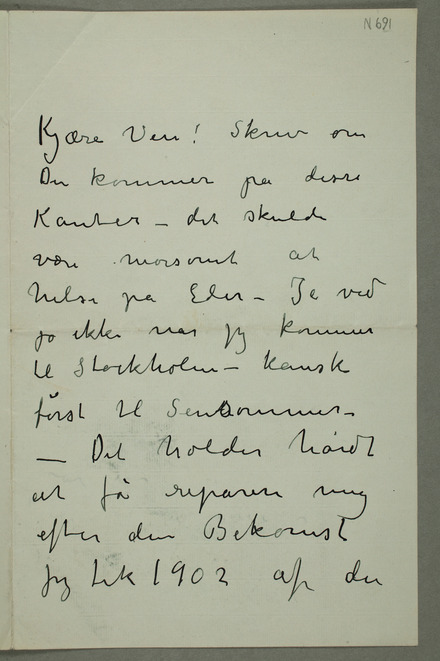 N 691
Kjære Ven! Skriv om
Du kommer på disse
Kanter – det skulde
være morsomt at
hilse på Eder – Je ved
jo ikke når jeg kommer
til Stockholm – kanske
först til Sensommer –
– Det holder hårdt
at få reparere mig
efter den Bekomst
jeg fik 1902 af den